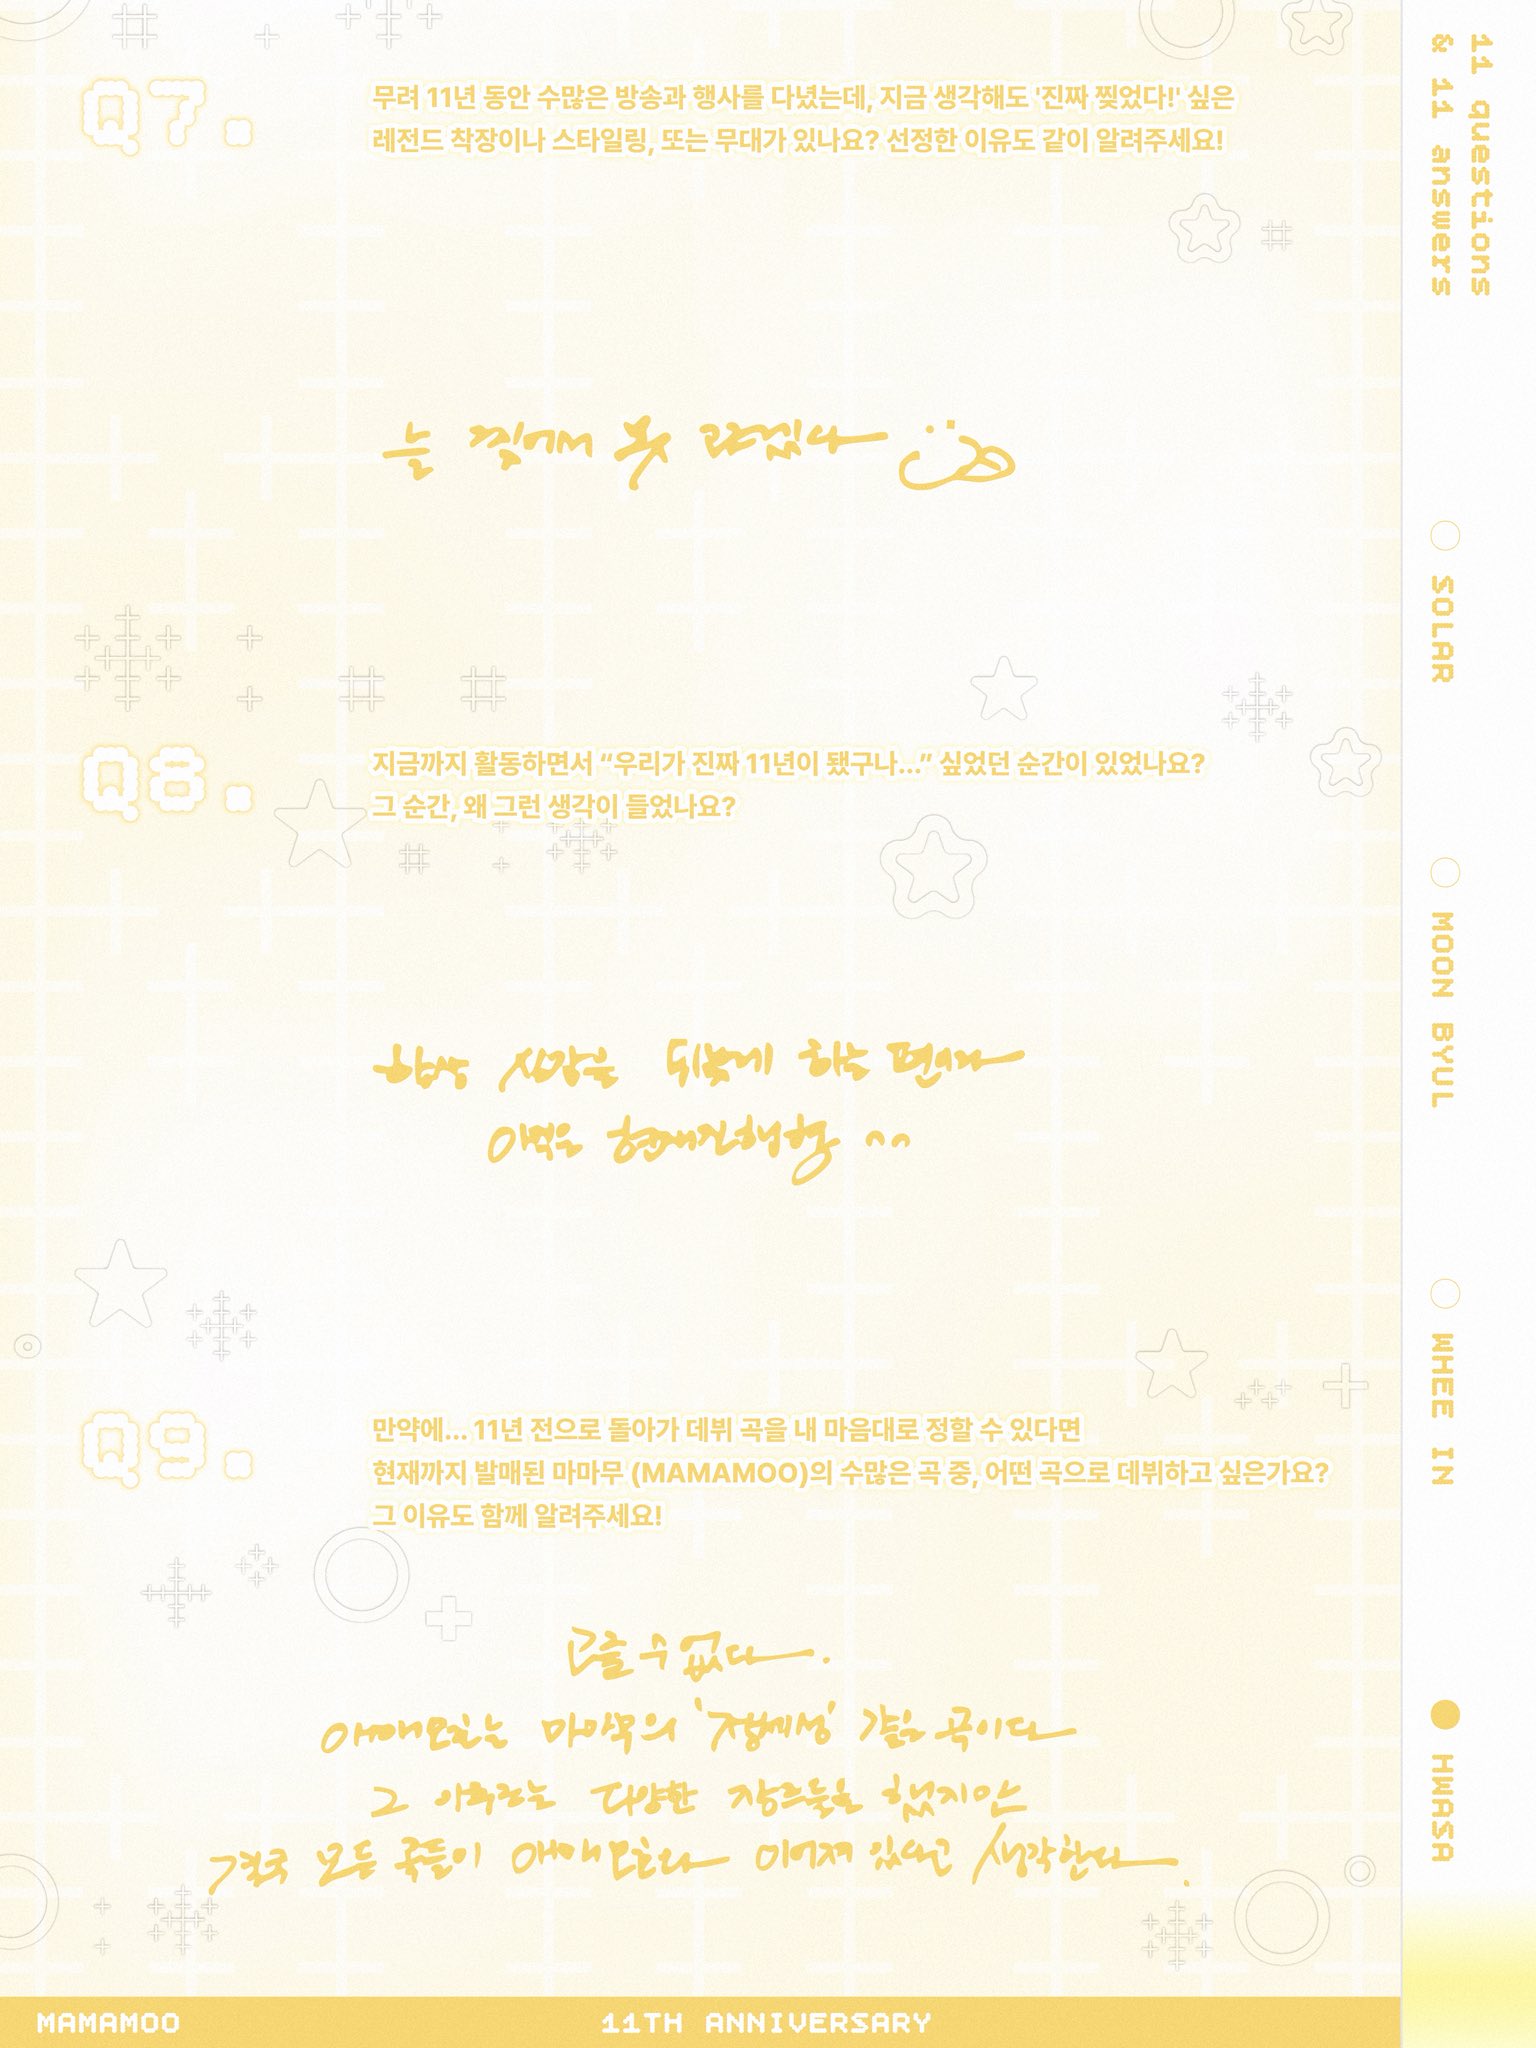 11 questions
& 11 answers
Q7.
무려 11년 동안 수많은 방송과 행사를 다녔는데, 지금 생각해도 '진짜 찢었다!' 싶은
레전드 착장이나 스타일링, 또는 무대가 있나요? 선정한 이유도 같이 알려주세요!
늘 찢어서 못 고르겠다
Q8.
지금까지 활동하면서 “우리가 진짜 11년이 됐구나...” 싶었던 순간이 있었나요?
그 순간, 왜 그런 생각이 들었나요?
항상 사랑을 뒤늦게 하는 편이라
아직은 현재진행형 ^^
Q9.
만약에... 11년 전으로 돌아가 데뷔 곡을 내 마음대로 정할 수 있다면
현재까지 발매된 마마무 (MAMAMOO)의 수많은 곡 중, 어떤 곡으로 데뷔하고 싶은가요?
그 이유도 함께 알려주세요!
고를 수 없다.
애매모호는 마마무의 '정체성' 같은 곡이다
그 이후로는 다양한 장르들을 했지만
결국 모든 곡들이 애매모호와 이어져 있다고 생각한다.
SOLAR
MOON BYUL
WHEE IN
HWASA
MAMAMOO
11TH ANNIVERSARY